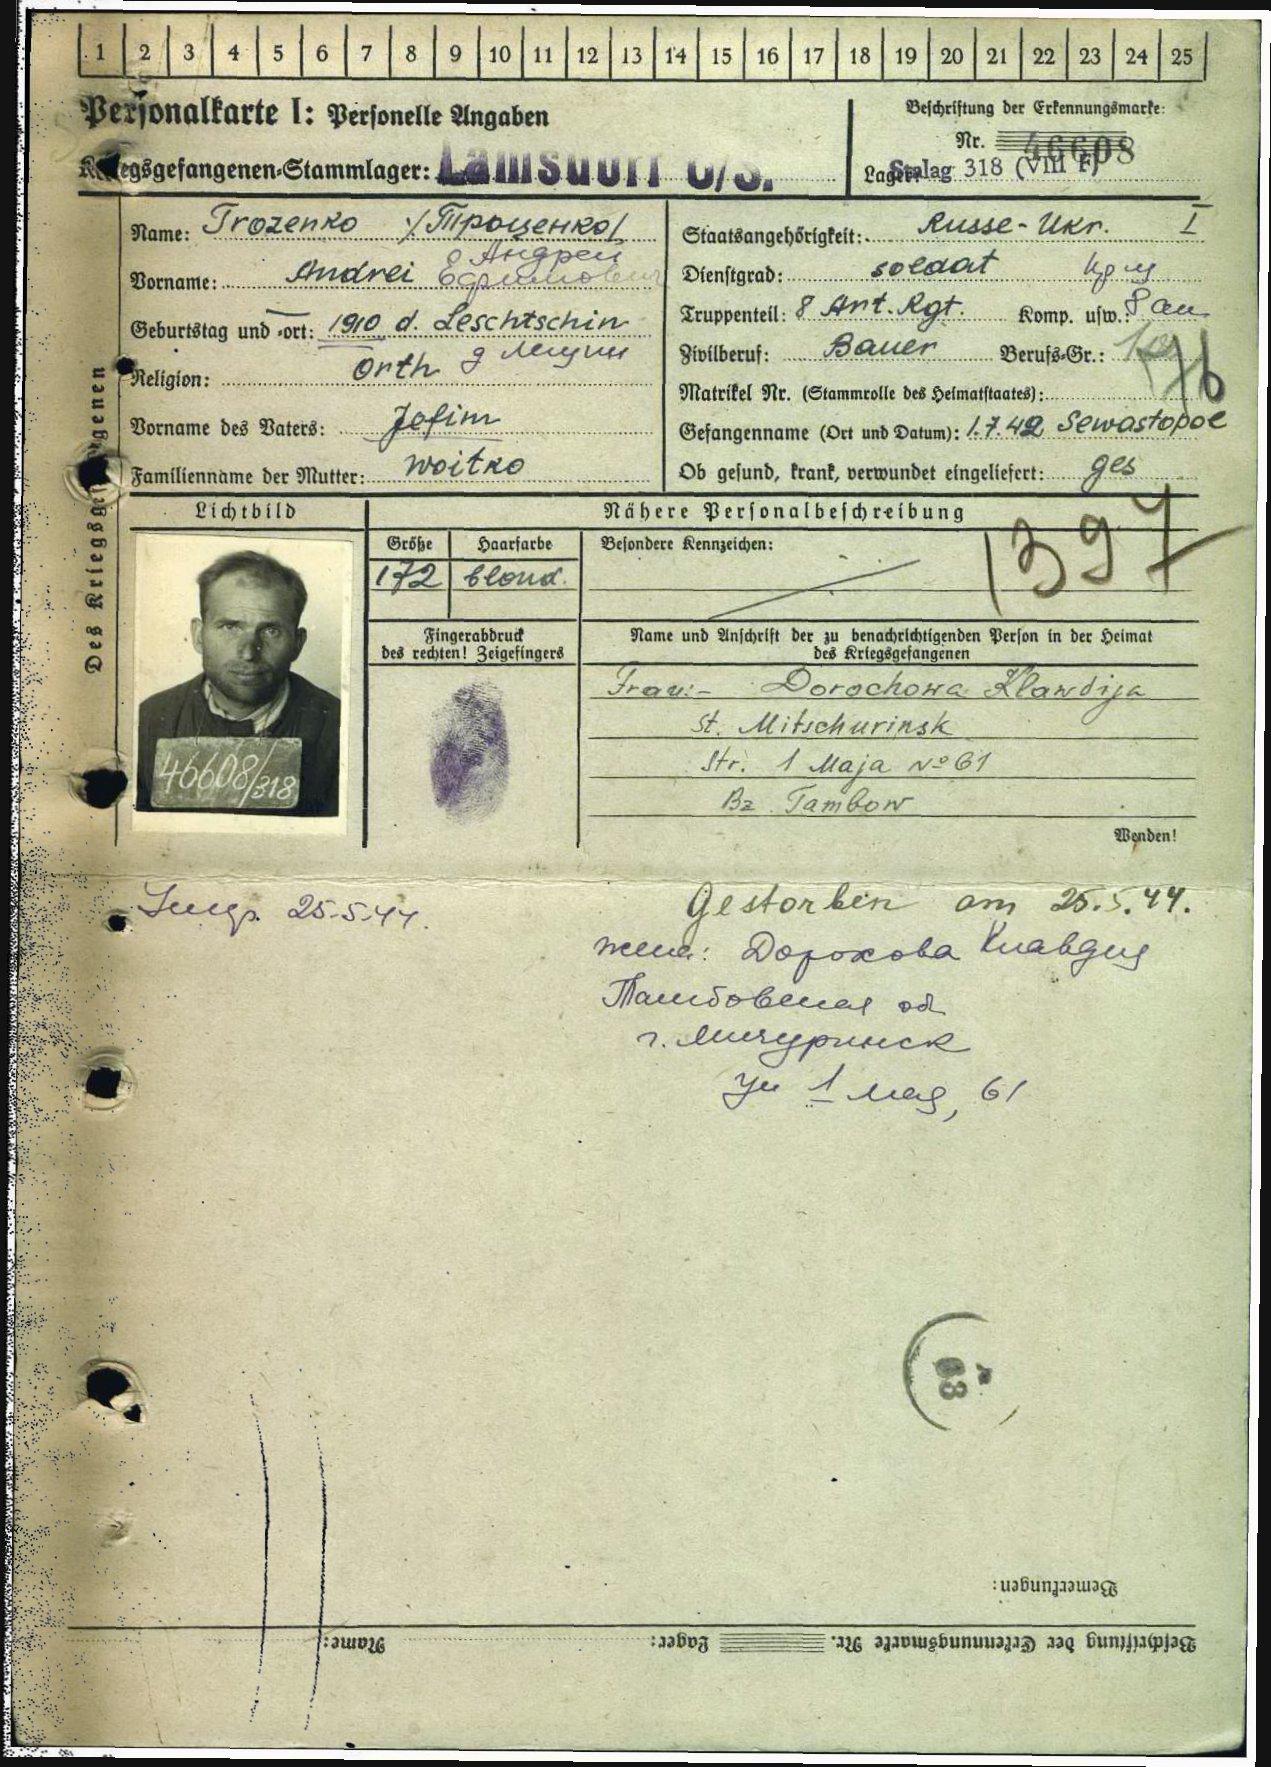 1 2 3 4 5 6 7 8 9 10 11 12 13 14 15 16 17 18 19 20 21 22 23 24 25
Personalkarte I: Personelle Angaben
Kriegsgefangenen-Stammlager: Lamsdorf O/S.
Beschriftung der Erkennungsmarke:
Nr. 46608
Lager: Stalag 318 (VIII F)
Des Kriegsgefangenen
Name: Trozenko /Троценко/
Андрей
Vorname: Andrei Ефимович
Geburtstag und -ort: 1910 d. Leschtschin
д Лещин
Religion: Orth
Vorname des Vaters: Jefim
Familienname der Mutter: Woitko
Staatsangehörigkeit: Russe-Ukr. I
Dienstgrad: soldat
Truppenteil: 8 Art. Rgt. Komp. usw.: 8
Zivilberuf: Bauer Berufs-Gr.:
Matrikel Nr. (Stammrolle des Heimatstaates):
Gefangenname (Ort und Datum): 1.7.42 Sewastopol
Ob gesund, krank, verwundet eingeliefert: ges
Lichtbild
Nähere Personalbeschreibung
Größe Haarfarbe Besondere Kennzeichen:
172 blond.
1397
Fingerabdruck
des rechten! Zeigefingers
Name und Anschrift der zu benachrichtigenden Person in der Heimat
des Kriegsgefangenen
Frau:- Dorochowa Klawdija
St. Mitschurinsk
Str. 1 Maja № 61
Bz Tambow
46608/318
Wenden!
25.5.44.
Gestorben am 25.5.44.
жена: Дорохова Клавдия
Тамбовская об
г. Мичуринск
ул 1 мая, 61
Bemerkungen:
Beschriftung der Erkennungsmarke Nr. Lager: Name: